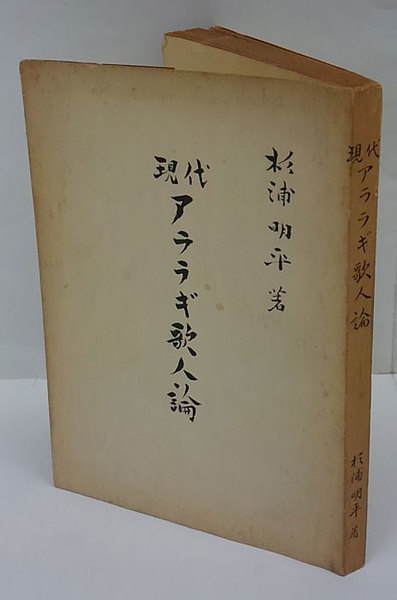 杉浦明平著
現代
アララギ歌人論
現代アララギ歌人論
杉浦明平著